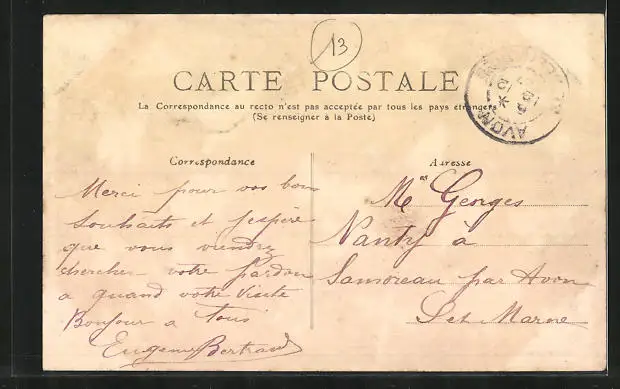 13
CARTE POSTALE
La Correspondance au recto n'est pas acceptée par tous les pays étrangers
(Se renseigner à la Poste)
AVON
Correspondance
Merci pour vos bons
souhaits et j'espère
que vous viendrez
chercher votre pardon
a quand votre visite
Bonjour a Tous
Eugene Bertrand
Adresse
Georges
Nanty à
Samoreau par Avon
S et Marne